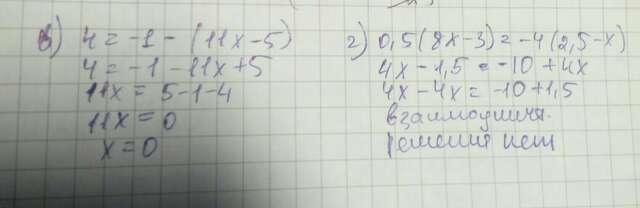 в) 4 = -1 - (11x-5)
4 = -1 - 11x+5
11x = 5-1-4
11x = 0
x = 0
г) 0,5(8x-3) = -4(2,5-x)
4x - 1,5 = -10 + 4x
4x - 4x = -10+1,5
решения нет